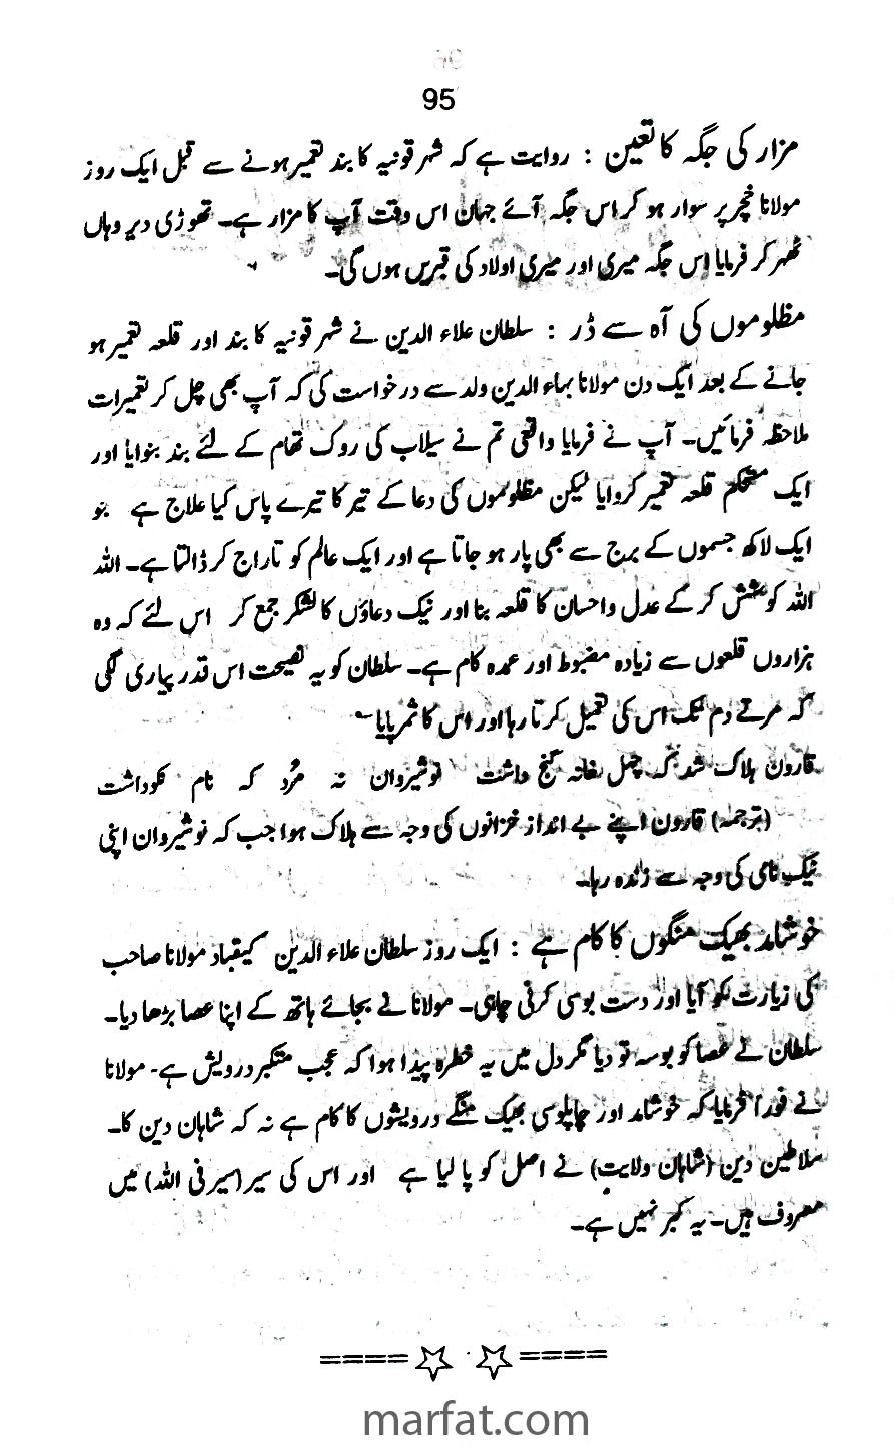 95
مزار کی جگہ کا تعین : روایت ہے کہ شہر قونیہ کا بند تعمیر ہونے سے قبل ایک روز
مولانا خچر پر سوار ہو کر اس جگہ آئے جہان اس وقت آپ کا مزار ہے۔ تھوڑی دیر وہاں
ٹھہر کر فرمایا اس جگہ میری اور میری اولاد کی قبریں ہوں گی۔
مظلوموں کی آہ سے ڈر : سلطان علاء الدین نے شہر قونیہ کا بند اور قلعہ تعمیر ہو
جانے کے بعد ایک دن مولانا بہاء الدین ولد سے درخواست کی کہ آپ بھی چل کر تعمیرات
ملاحظہ فرمائیں۔ آپ نے فرمایا واقعی تم نے سیلاب کی روک تھام کے لئے بند بنوایا اور
ایک مستحکم قلعہ تعمیر کروایا لیکن مظلوموں کی دعا کے تیر کا تیرے پاس کیا علاج ہے جو
ایک لاکھ جسموں کے برج سے بھی پار ہو جاتا ہے اور ایک عالم کو تاراج کر ڈالتا ہے۔ اللہ
اللہ کوشش کر کے عدل و احسان کا قلعہ بنا اور نیک دعاؤں کا لشکر جمع کر اس لئے کہ وہ
ہزاروں قلعوں سے زیادہ مضبوط اور عمدہ کام ہے۔ سلطان کو یہ نصیحت اس قدر پیاری لگی
کہ مرتے دم تک اس کی تعمیل کرتا رہا اور اس کا ثمر پایا۔
قارون ہلاک شد کہ چہل خانہ گنج داشت نوشیروان نہ مُرد کہ نام نکوداشت
(ترجمہ) قارون اپنے بے انداز خزانوں کی وجہ سے ہلاک ہوا جب کہ نوشیروان اپنی
نیک نامی کی وجہ سے زندہ رہا۔
خوشامد بھیک منگوں کا کام ہے : ایک روز سلطان علاء الدین کیقباد مولانا صاحب
کی زیارت کو آیا اور دست بوسی کرنی چاہی۔ مولانا نے بجائے ہاتھ کے اپنا عصا بڑھا دیا۔
سلطان نے عصا کو بوسہ تو دیا مگر دل میں یہ خطرہ پیدا ہوا کہ عجب متکبر درویش ہے۔ مولانا
نے فوراً فرمایا کہ خوشامد اور چاپلوسی بھیک منگے درویشوں کا کام ہے نہ کہ شاہان دین کا۔
سلاطین دین (شاہان ولایت) نے اصل کو پا لیا ہے اور اس کی سیر (سیر فی اللہ) میں
معروف ہیں۔ یہ کبر نہیں ہے۔
====☆ ☆====
marfat.com